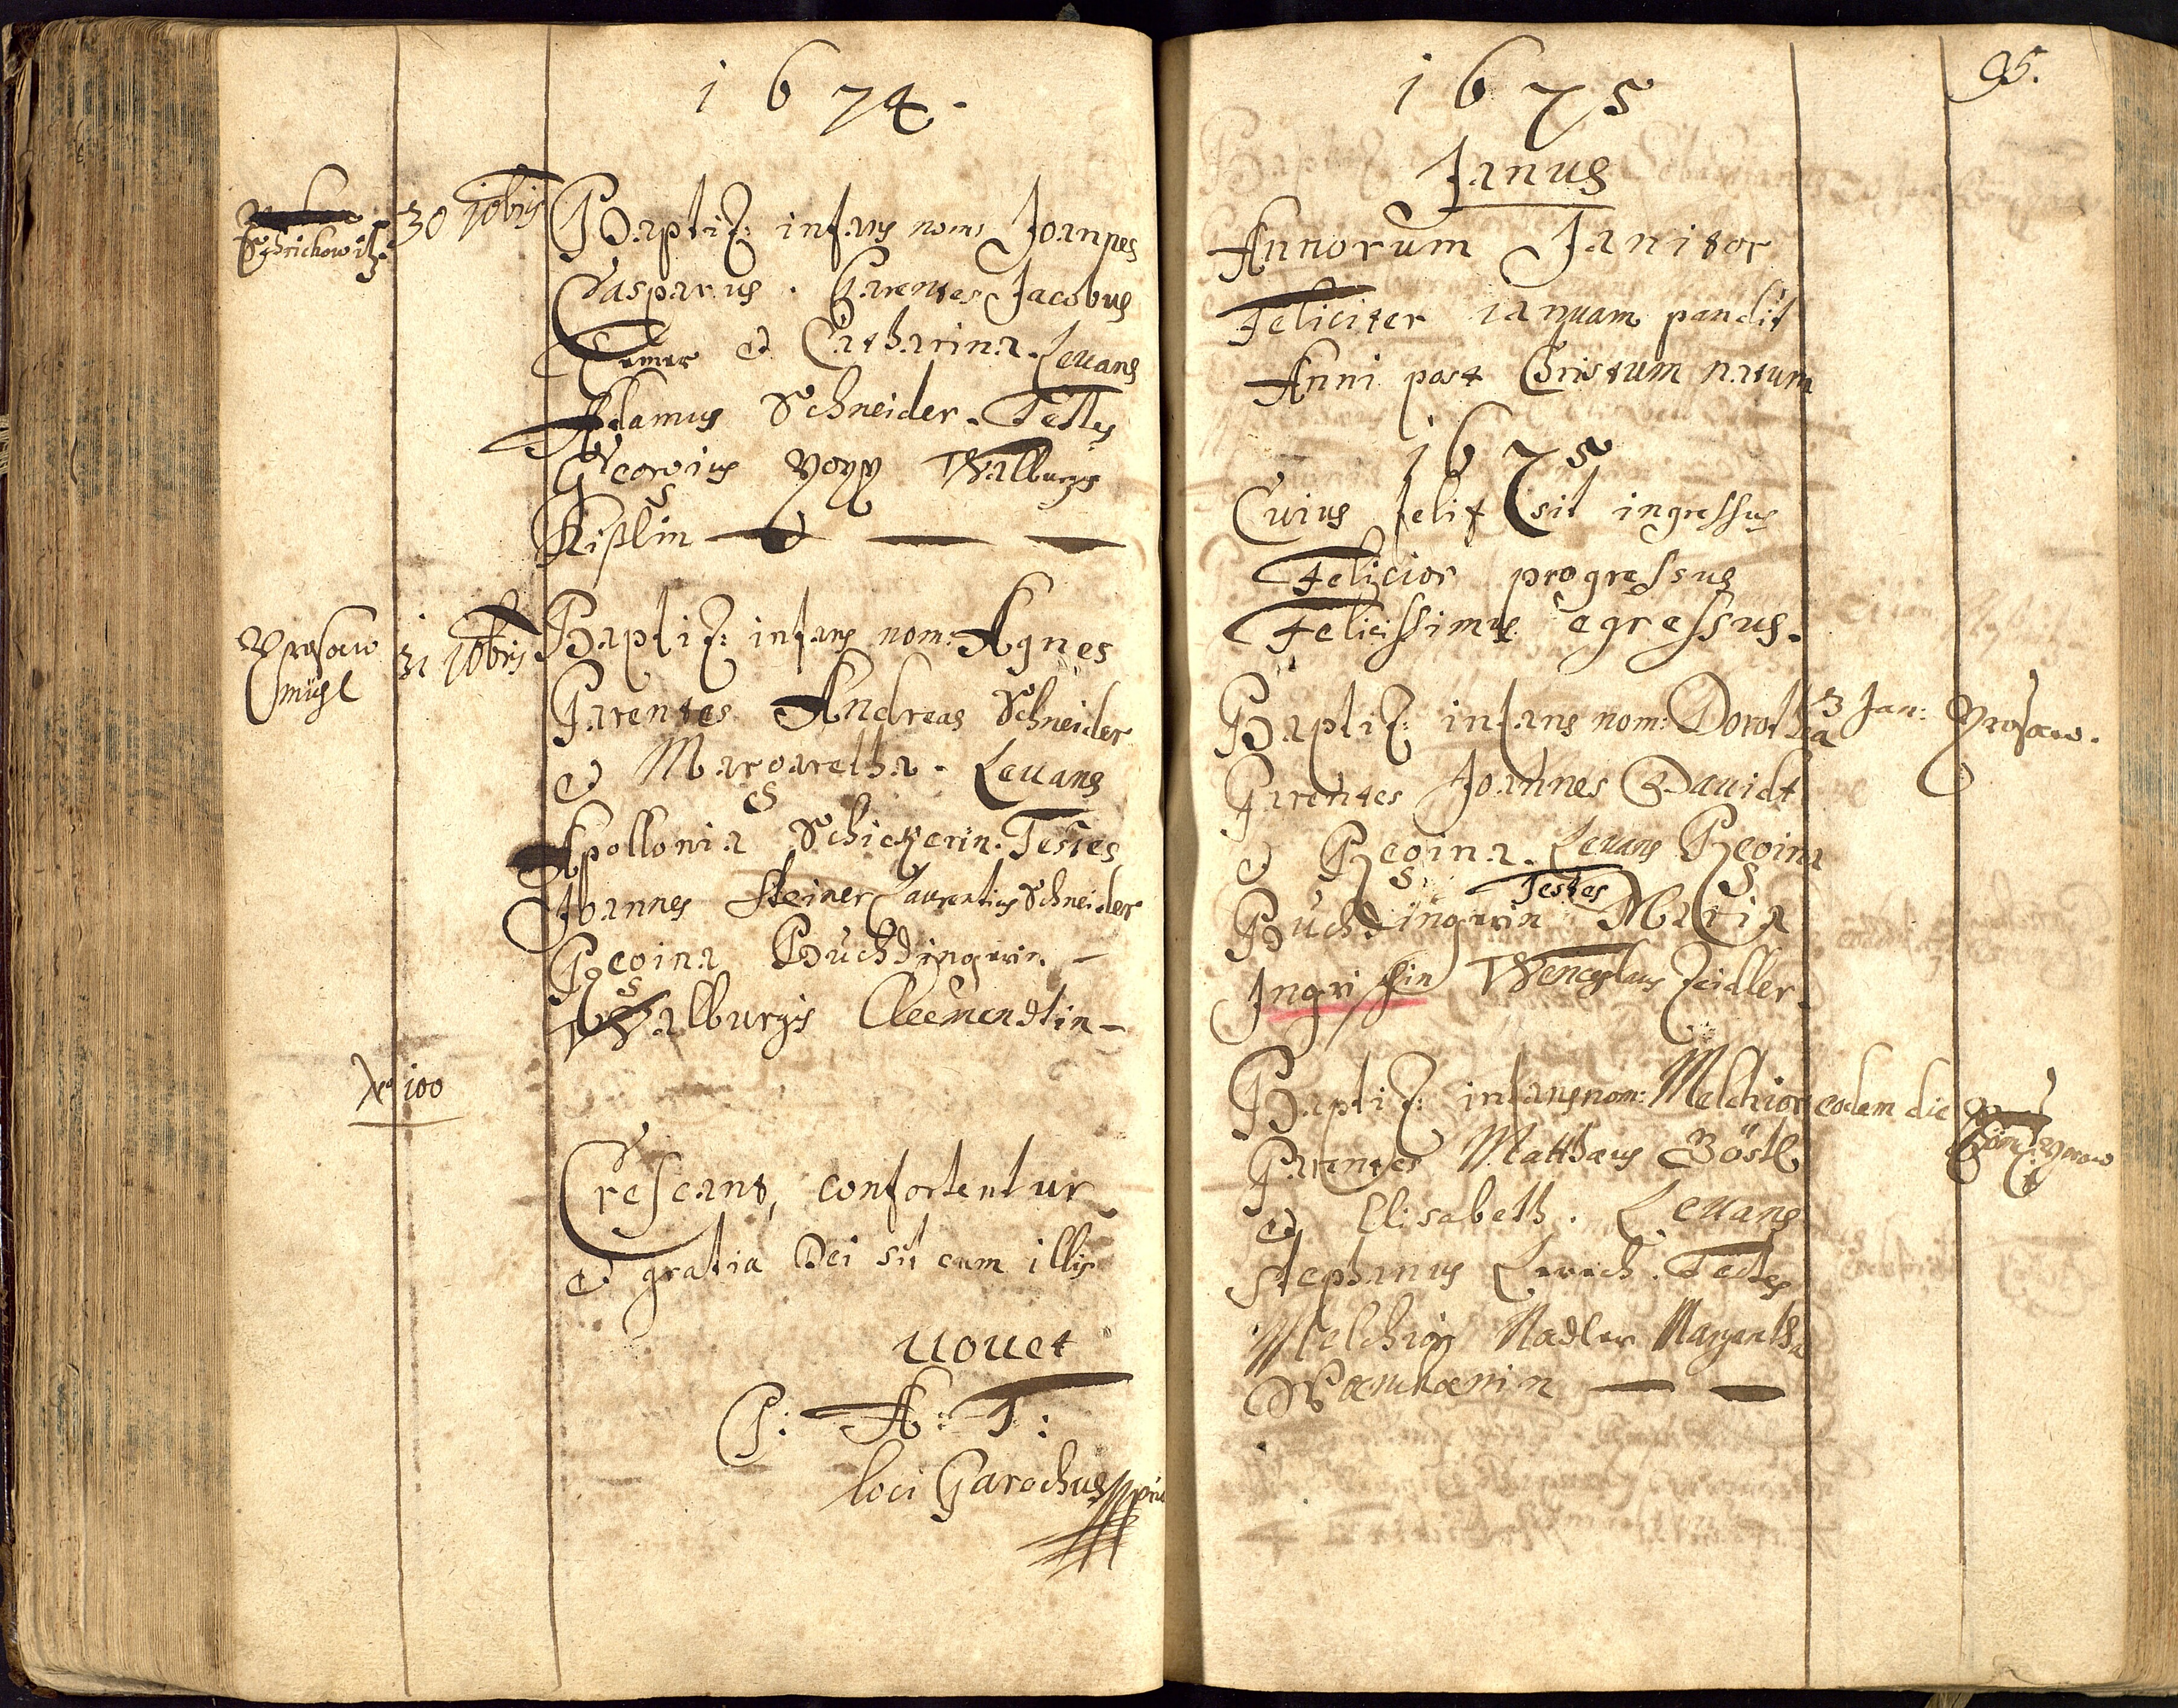 1674.
Schrichowitz
30 10bris
Baptiz: infans nom: Joannes
Casparus. Parentes Jacobus
et Catharina. Levans
Adamus Schneider. Testes
Georgius Popp Walburgis
Kiplin
Prosaw
mühl
31 10bris
Baptiz: infans nom: Agnes
Parentes Andreas Schneider
et Margaretha. Levans
Apollonia Schickerin. Testes
Joannes Steiner Laurentius Schneider
Regina Buchdingerin.
Walburgis Cleemendtin
100
Crescant, confortentur
et gratia Dei sit cum illis
uouet
P: A: T:
loci Parochus mpria
1675
95.
Janus
Annorum Janitor
Feliciter ianuam pandit
Anni post Christum natum
1675
Cuius felix sit ingressus
Felicior progressus
Felicissimus egressus.
Baptiz: infans nom: Dorothea
3 Jan:
Prosaw.
Parentes Joannes Dauidt
et Regina. Levans Regina
Buchdingerin Testes Maria
Ingrisin Wenceslaus Zeidler.
Baptiz: infans nom: Melchior
eodem die
Parentes Matthaeus Böstl
et Elisabeth. Levans
Stephanus Lerch. Testes
Melchior Nadler Margaretha